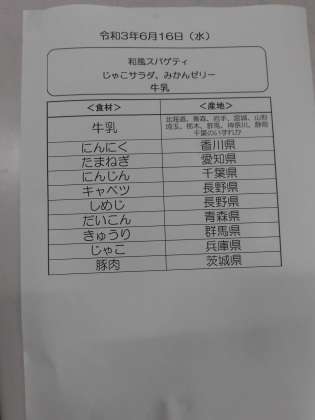 令和3年6月16日（水）
和風スパゲティ
じゃこサラダ、みかんゼリー
牛乳
＜食材＞ ＜産地＞
牛乳 北海道、青森、岩手、宮城、山形
埼玉、栃木、群馬、神奈川、静岡
千葉のいずれか
にんにく 香川県
たまねぎ 愛知県
にんじん 千葉県
キャベツ 長野県
しめじ 長野県
だいこん 青森県
きゅうり 群馬県
じゃこ 兵庫県
豚肉 茨城県